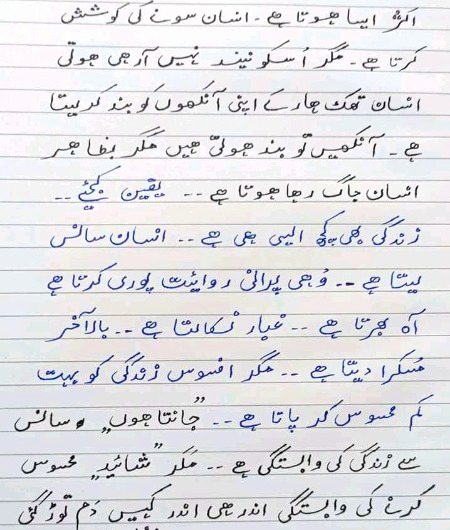 اکثر ایسا ہوتا ہے۔ انسان سونے کی کوشش
کرتا ہے۔ مگر اُسکو نیند نہیں آرہی ہوتی
انسان تھک ہار کے اپنی آنکھوں کو بند کر لیتا
ہے۔ آنکھیں تو بند ہوتی ہیں مگر بظاہر
انسان جاگ رہا ہوتا ہے ۔۔ یقین کیجئے ۔۔
زندگی بھی کچھ ایسی ہی ہے ۔۔ انسان سانس
لیتا ہے ۔۔ وُہی پرانی روائیت پوری کرتا ہے
آہ بھرتا ہے ۔۔ غبار نکالتا ہے ۔۔ بالآخر
مُسکرا دیتا ہے ۔۔ مگر افسوس زندگی کو بہت
کم محسوس کر پاتا ہے ۔۔ "جانتا ہوں" سانس
سے زندگی کی وابستگی ہے ۔۔ مگر "شائید" محسوس
کرنے کی وابستگی اندر ہی اندر کہیں دَم توڑ گئی